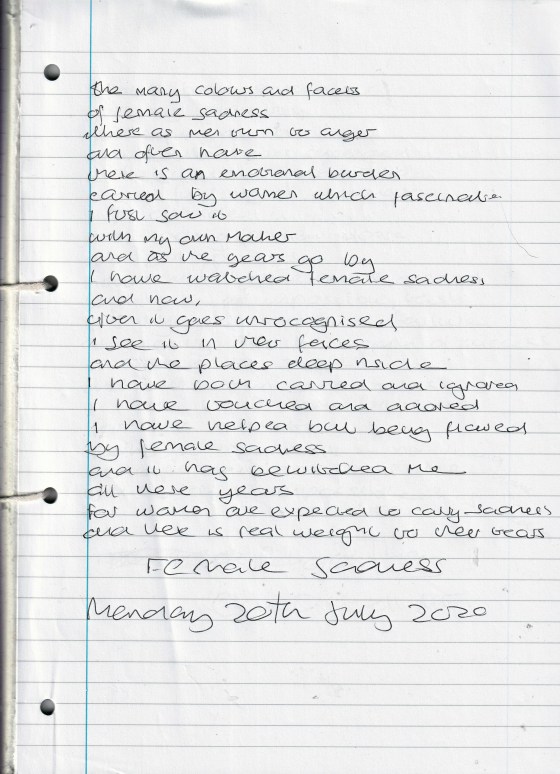 the many colours and facets
of female sadness
where as men turn to anger
and often have
there is an emotional burden
carried by women which fascinates
I first saw it
with my own Mother
and as the years go by
I have watched female sadness
and now,
often it goes unrecognised
I see it in their faces
and the places deep inside
I have both carried and ignored
I have touched and adored
I have helped but being flawed
by female sadness
and it has bewitched me
all these years
for women are expected to carry sadness
and there is real weight to their tears
Female Sadness
Monday 20th July 2020